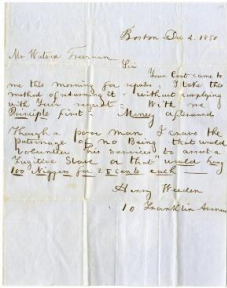 Boston Dec 4. 1850
Mr Watson Freeman
Sir
Your Coat came to
me this morning for repair, I take this
method of returning it, without complying
with Your request. With me
Principle first - Money afterward
Though a poor man I crave the
patronage of no Being that would
volunteer his services to arrest a
"Fugitive Slave or that" would hang
100 Niggers for 25 cents each
Henry Weeden
10 Franklin Avenue